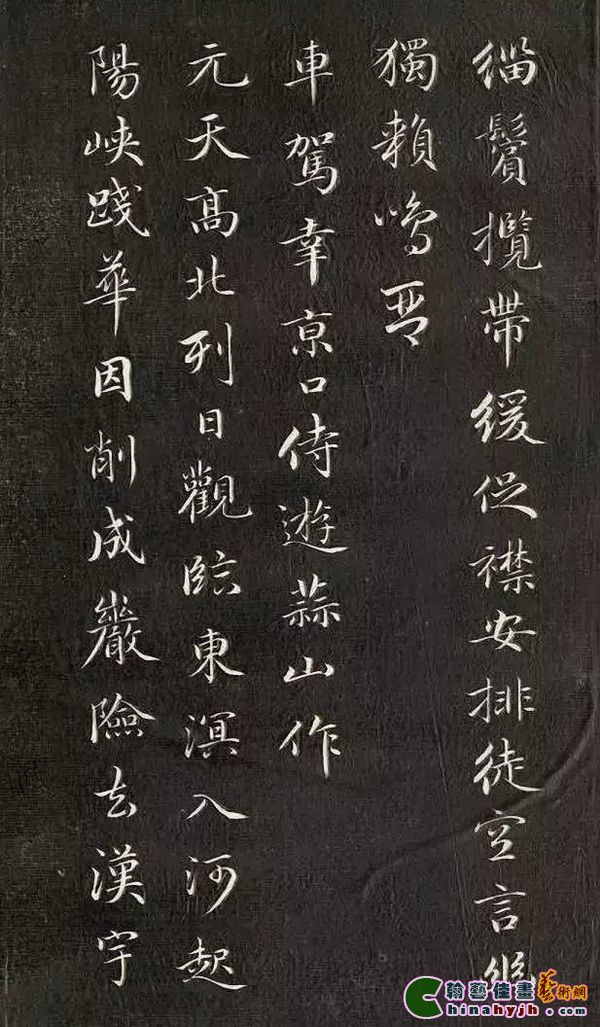 緇鬢攬帶緩促襟安排徒空言幽
獨賴鳴琴
車駕幸京口侍遊蒜山作
元天高北列日觀臨東溟入河起
陽峽踐華因削成巖險去漢宇
翰藝佳畫藝術網
Chinahyjh.com